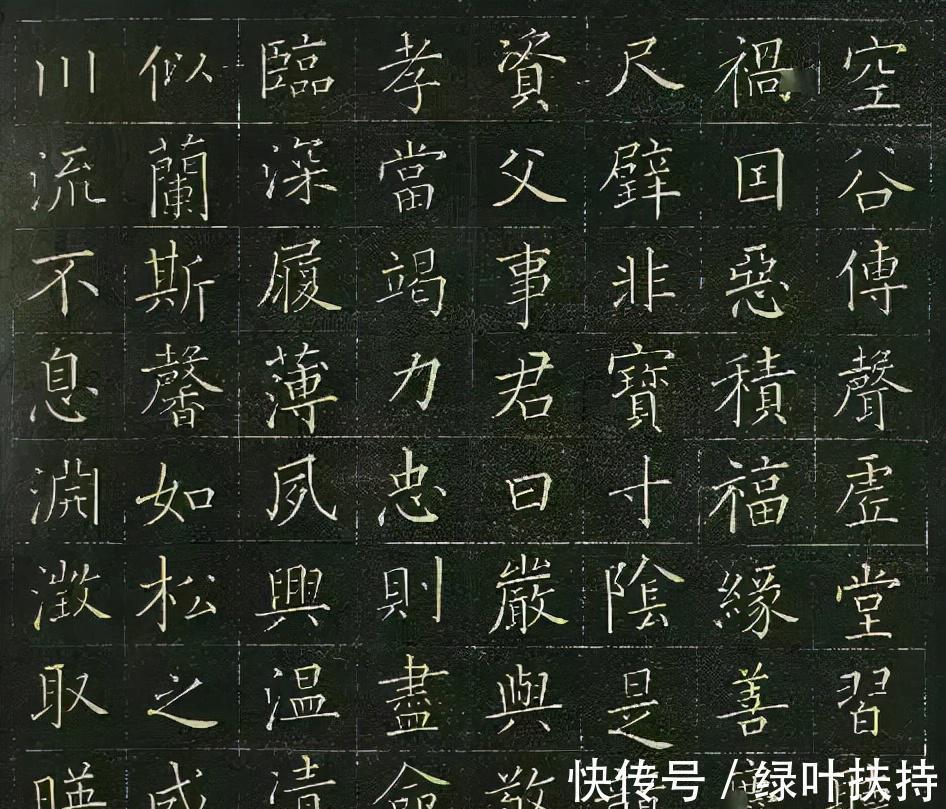 空谷傳聲虛堂習
禍囙惡積福緣善
尺璧非寶寸陰是
資父事君曰嚴與敬
孝當竭力忠則盡命
臨深履薄夙興温清
似蘭斯馨如松之盛
川流不息淵澂取暎
快传号 / 绿叶扶持